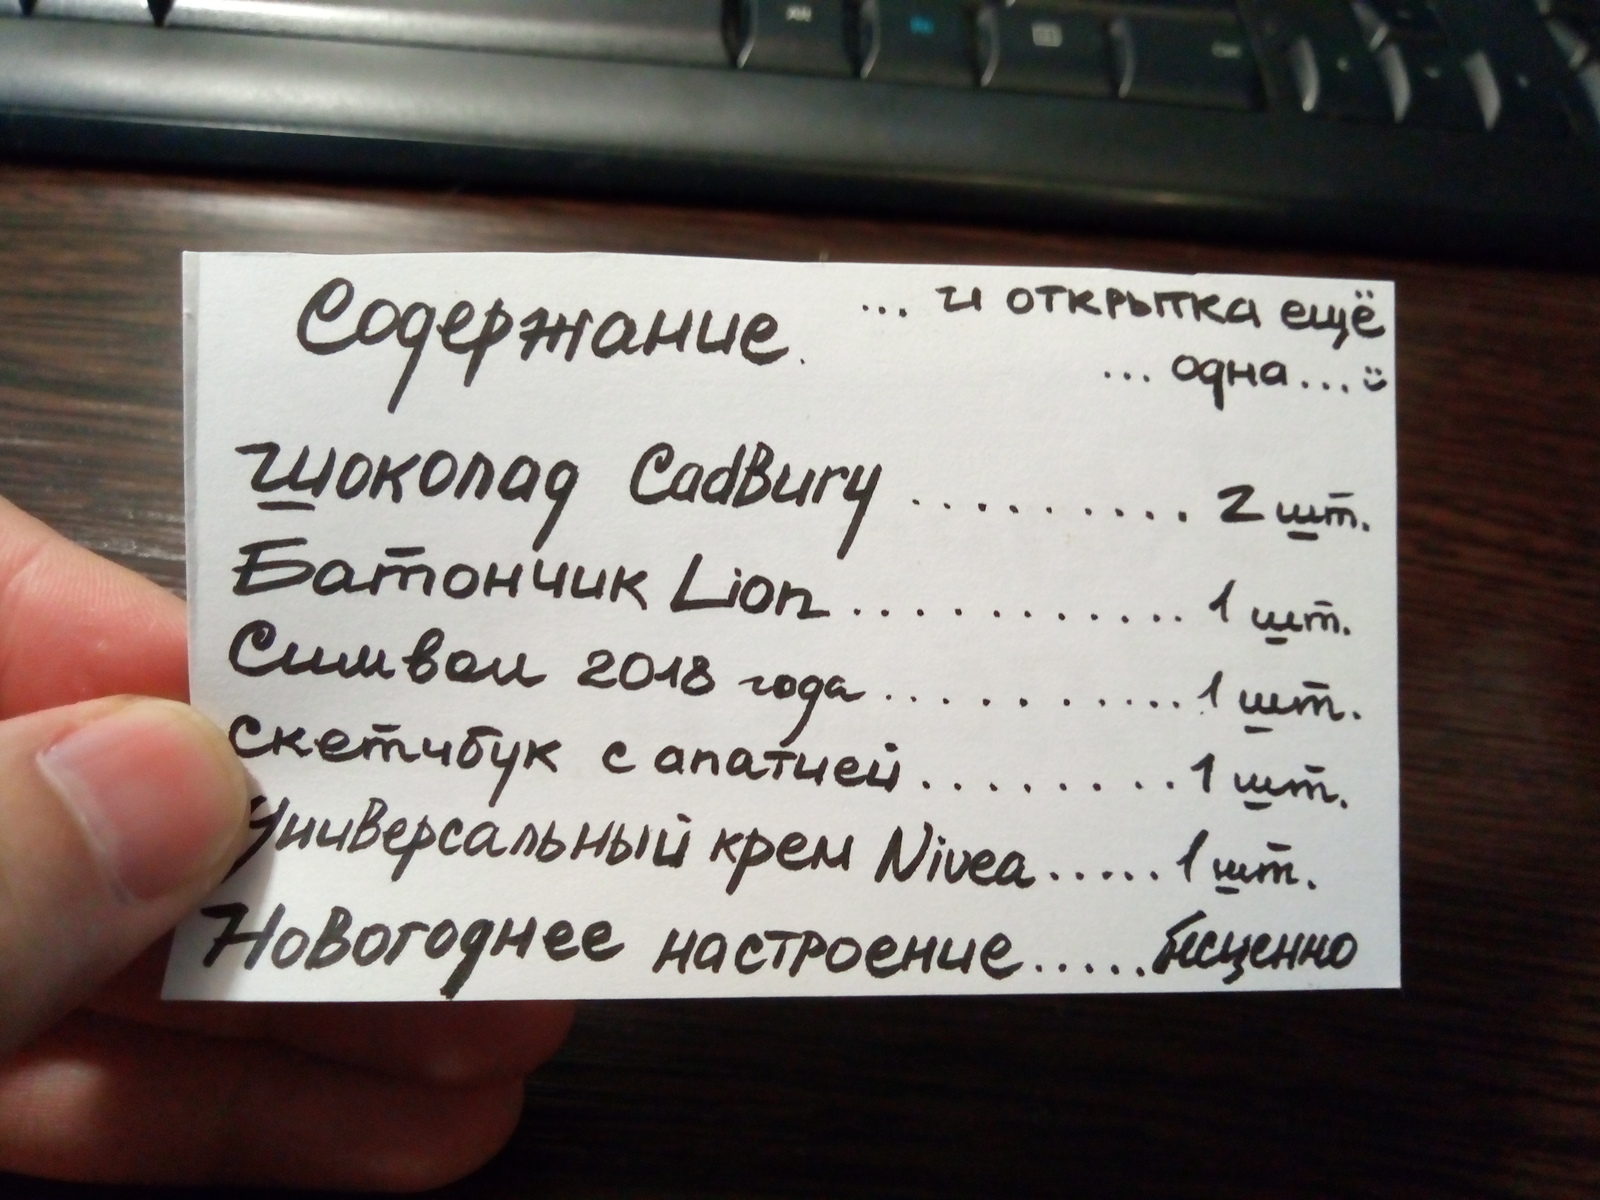 Содержание.
... и открытка ещё
... одна... :)
Шоколад CadBury .......... 2 шт.
Батончик Lion ............ 1 шт.
Символ 2018 года ........... 1 шт.
скетчбук с апатией ......... 1 шт.
Универсальный крем Nivea ..... 1 шт.
Новогоднее настроение ..... бесценно